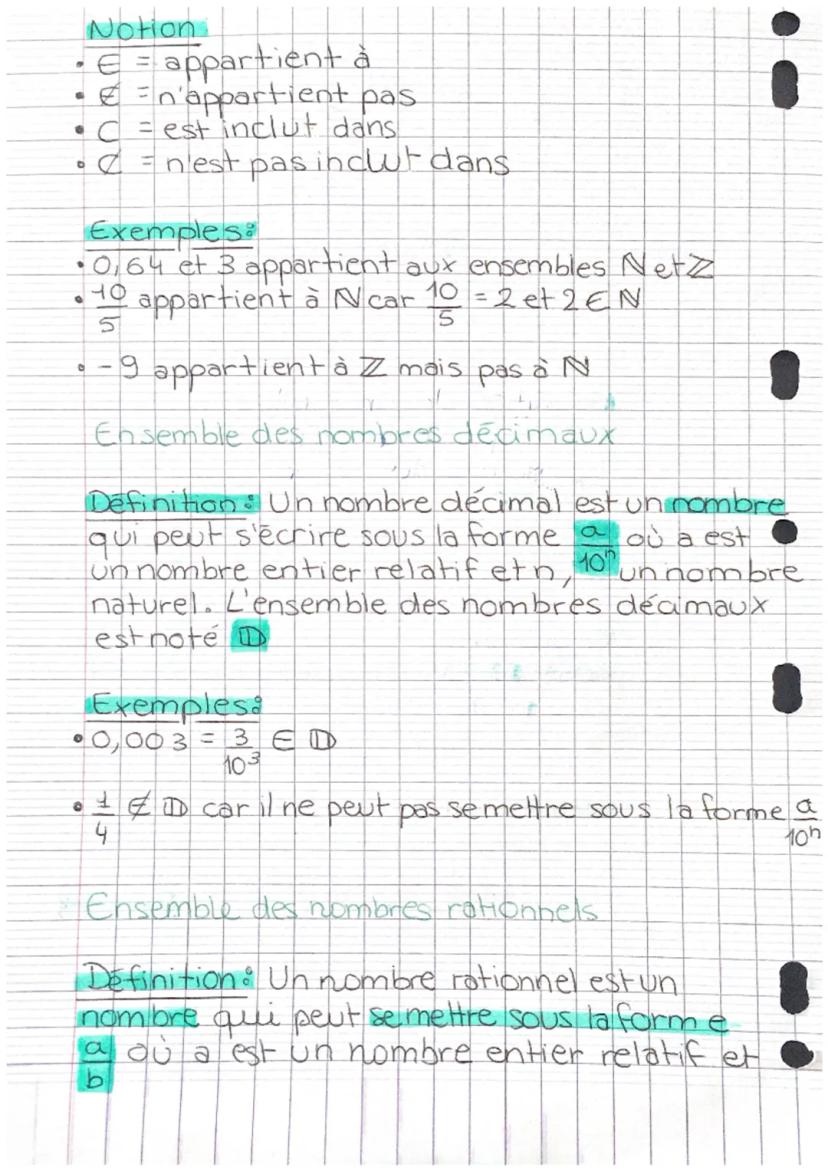 Notion
• ∈ = appartient à
• ∉ = n'appartient pas
• ⊂ = est inclut dans
• ⊄ = n'est pas inclut dans
Exemples:
• 0,64 et 3 appartient aux ensembles ℕ et ℤ
• 10/5 appartient à ℕ car 10/5 = 2 et 2 ∈ ℕ
• -9 appartient à ℤ mais pas à ℕ
Ensemble des nombres décimaux
Définition: Un nombre décimal est un nombre
qui peut s'écrire sous la forme a/10ⁿ où a est
un nombre entier relatif et n, un nombre
naturel. L'ensemble des nombres décimaux
est noté 𝔻
Exemples:
• 0,003 = 3/10³ ∈ 𝔻
• 1/4 ∉ 𝔻 car il ne peut pas se mettre sous la forme a/10ⁿ
Ensemble des nombres rationnels
Définition: Un nombre rationnel est un
nombre qui peut se mettre sous la forme
a/b où a est un nombre entier relatif et